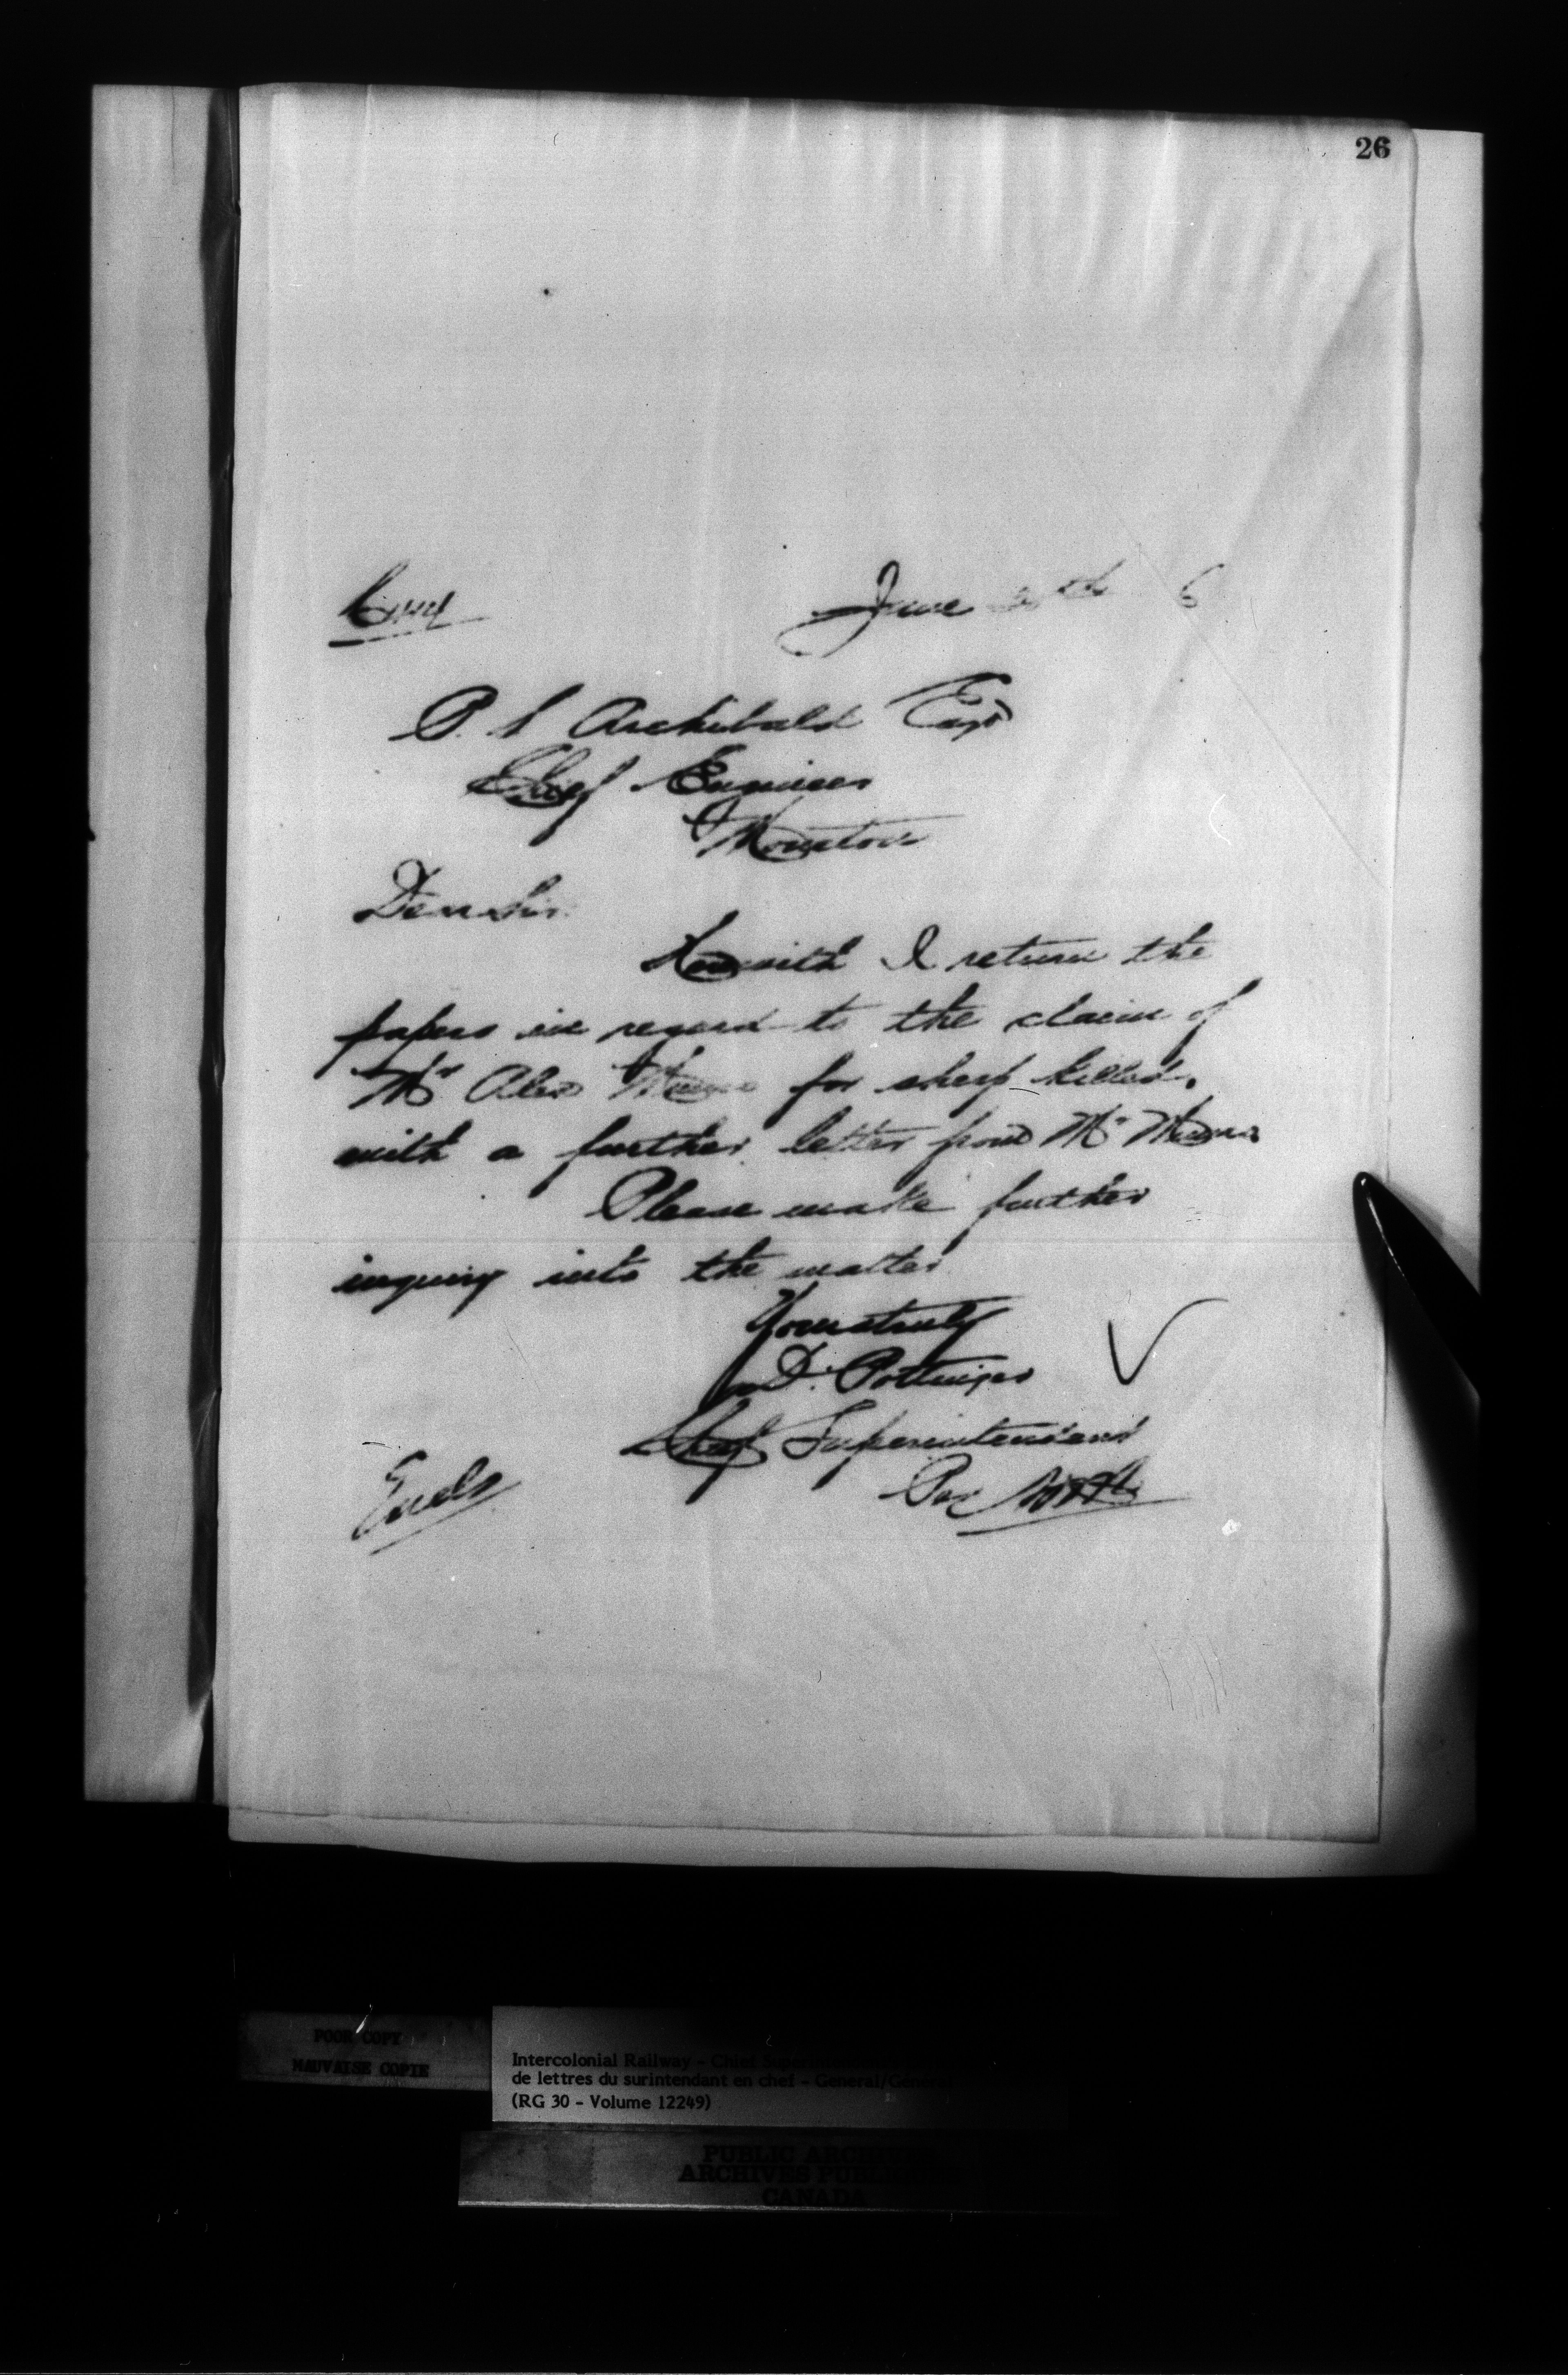 26
June 6
P. S Archibald Esqr
Chief Engineer
Moncton
Dear Sir
Herewith I return the
papers in regard to the claim of
Mr Alex for sheep killed,
with a further letter from Mr
Please make further
inquiry into the matter
Yours truly
D. Pottinger
Chief Superintendent
Per
Encls
POOR COPY
MAUVAISE COPIE
Intercolonial Railway - Chief
de lettres du surintendant en chef - General/
(RG 30 - Volume 12249)
PUBLIC ARCHIVES
ARCHIVES PUBLIQUES
CANADA